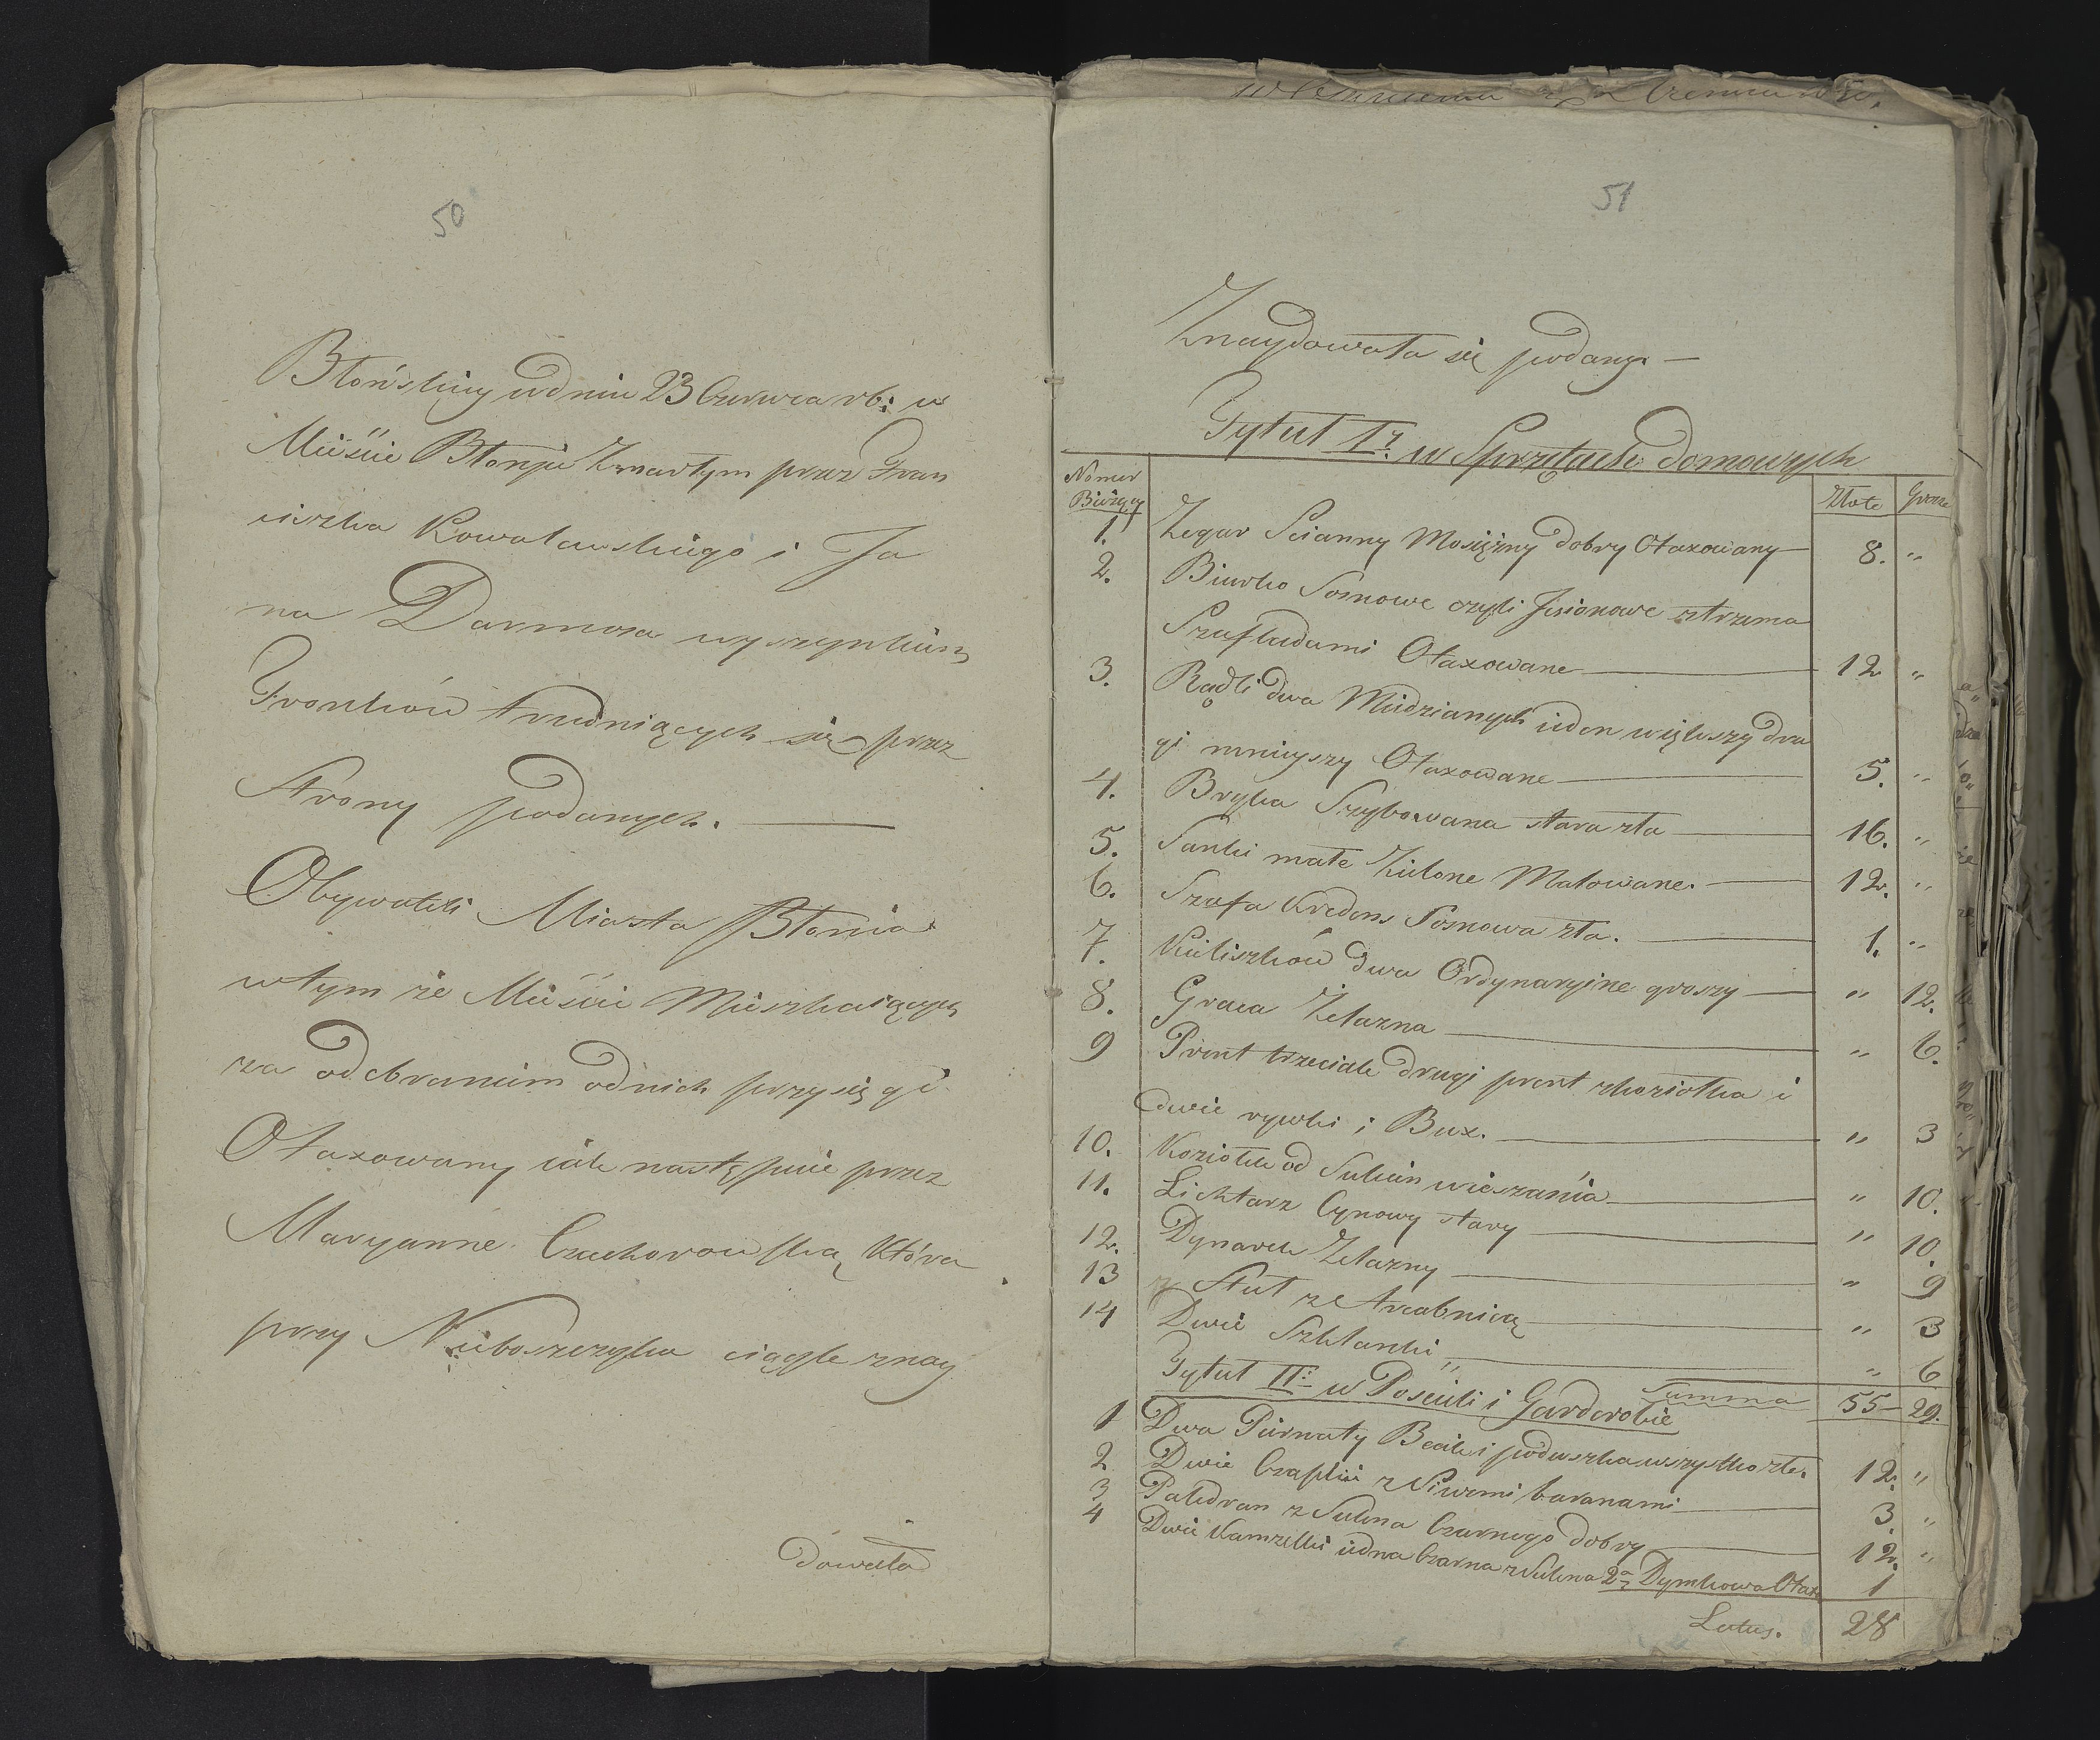 50
Błońskiey w dniu 23 Czerwca rb: w
Mieście Błoniu Zmarłym przez Fran
ciszka Kowalewskiego i Ja
na Darmosa wyszynkiem
Tronków trudniących się przez
Strony podanych. —
Obywateli Miasta Błonia
w tym że Mieście Mieszkaiących
za odebraniem od nich przysięgi
Otaxowany iak następuie przez
Maryannę Czachorowską która
przy Nieboszczyku ciągle znay
dowała
51
Znaydowała się podany. —
Tytuł I. w Sprzętach domowych
Numer
Bieżący
Złote Grosze
1. Zegar Scianny Mosiężny dobry Otaxowany 8. "
2. Biurko Sosnowe czyli Jesionowe z trzema
Szufladami Otaxowane 12 "
3. Rądli dwa Miedzianych ieden większy dru
gi mnieyszy Otaxowane 5. "
4. Bryka Szybowana stara zła 16. "
5. Sanki małe Zielone Malowane. 12. "
6. Szafa Kredens Sosnowa zła. 1. "
7. Kieliszków dwa Ordynaryjne groszy " 12.
8. Graca Żelazna " 6.
9 Prent trzeciak drugi prent z koziołka i
dwie rywki i Bux. " 3
10. Koziołek od Sukien wieszania " 10.
11. Lichtarz Cynowy stary " 10.
12. Dynarek Żelazny " 9
13 Stut z Arcabnicą " 3
14 Dwie Szklanki " 6
Summa 55 29.
Tytuł II: w Pościeli i Garderobie
1 Dwa Piernaty Beciki poduszka wszystko złe. 12. "
2 Dwie Czapki z Siwemi baranami 3. "
3 Paledran z Sukna Czarnego dobry 12. "
4 Dwie Kamzelki iedna Czarna z Sukna 2a Dymkowa Otax 1
Latus. 28